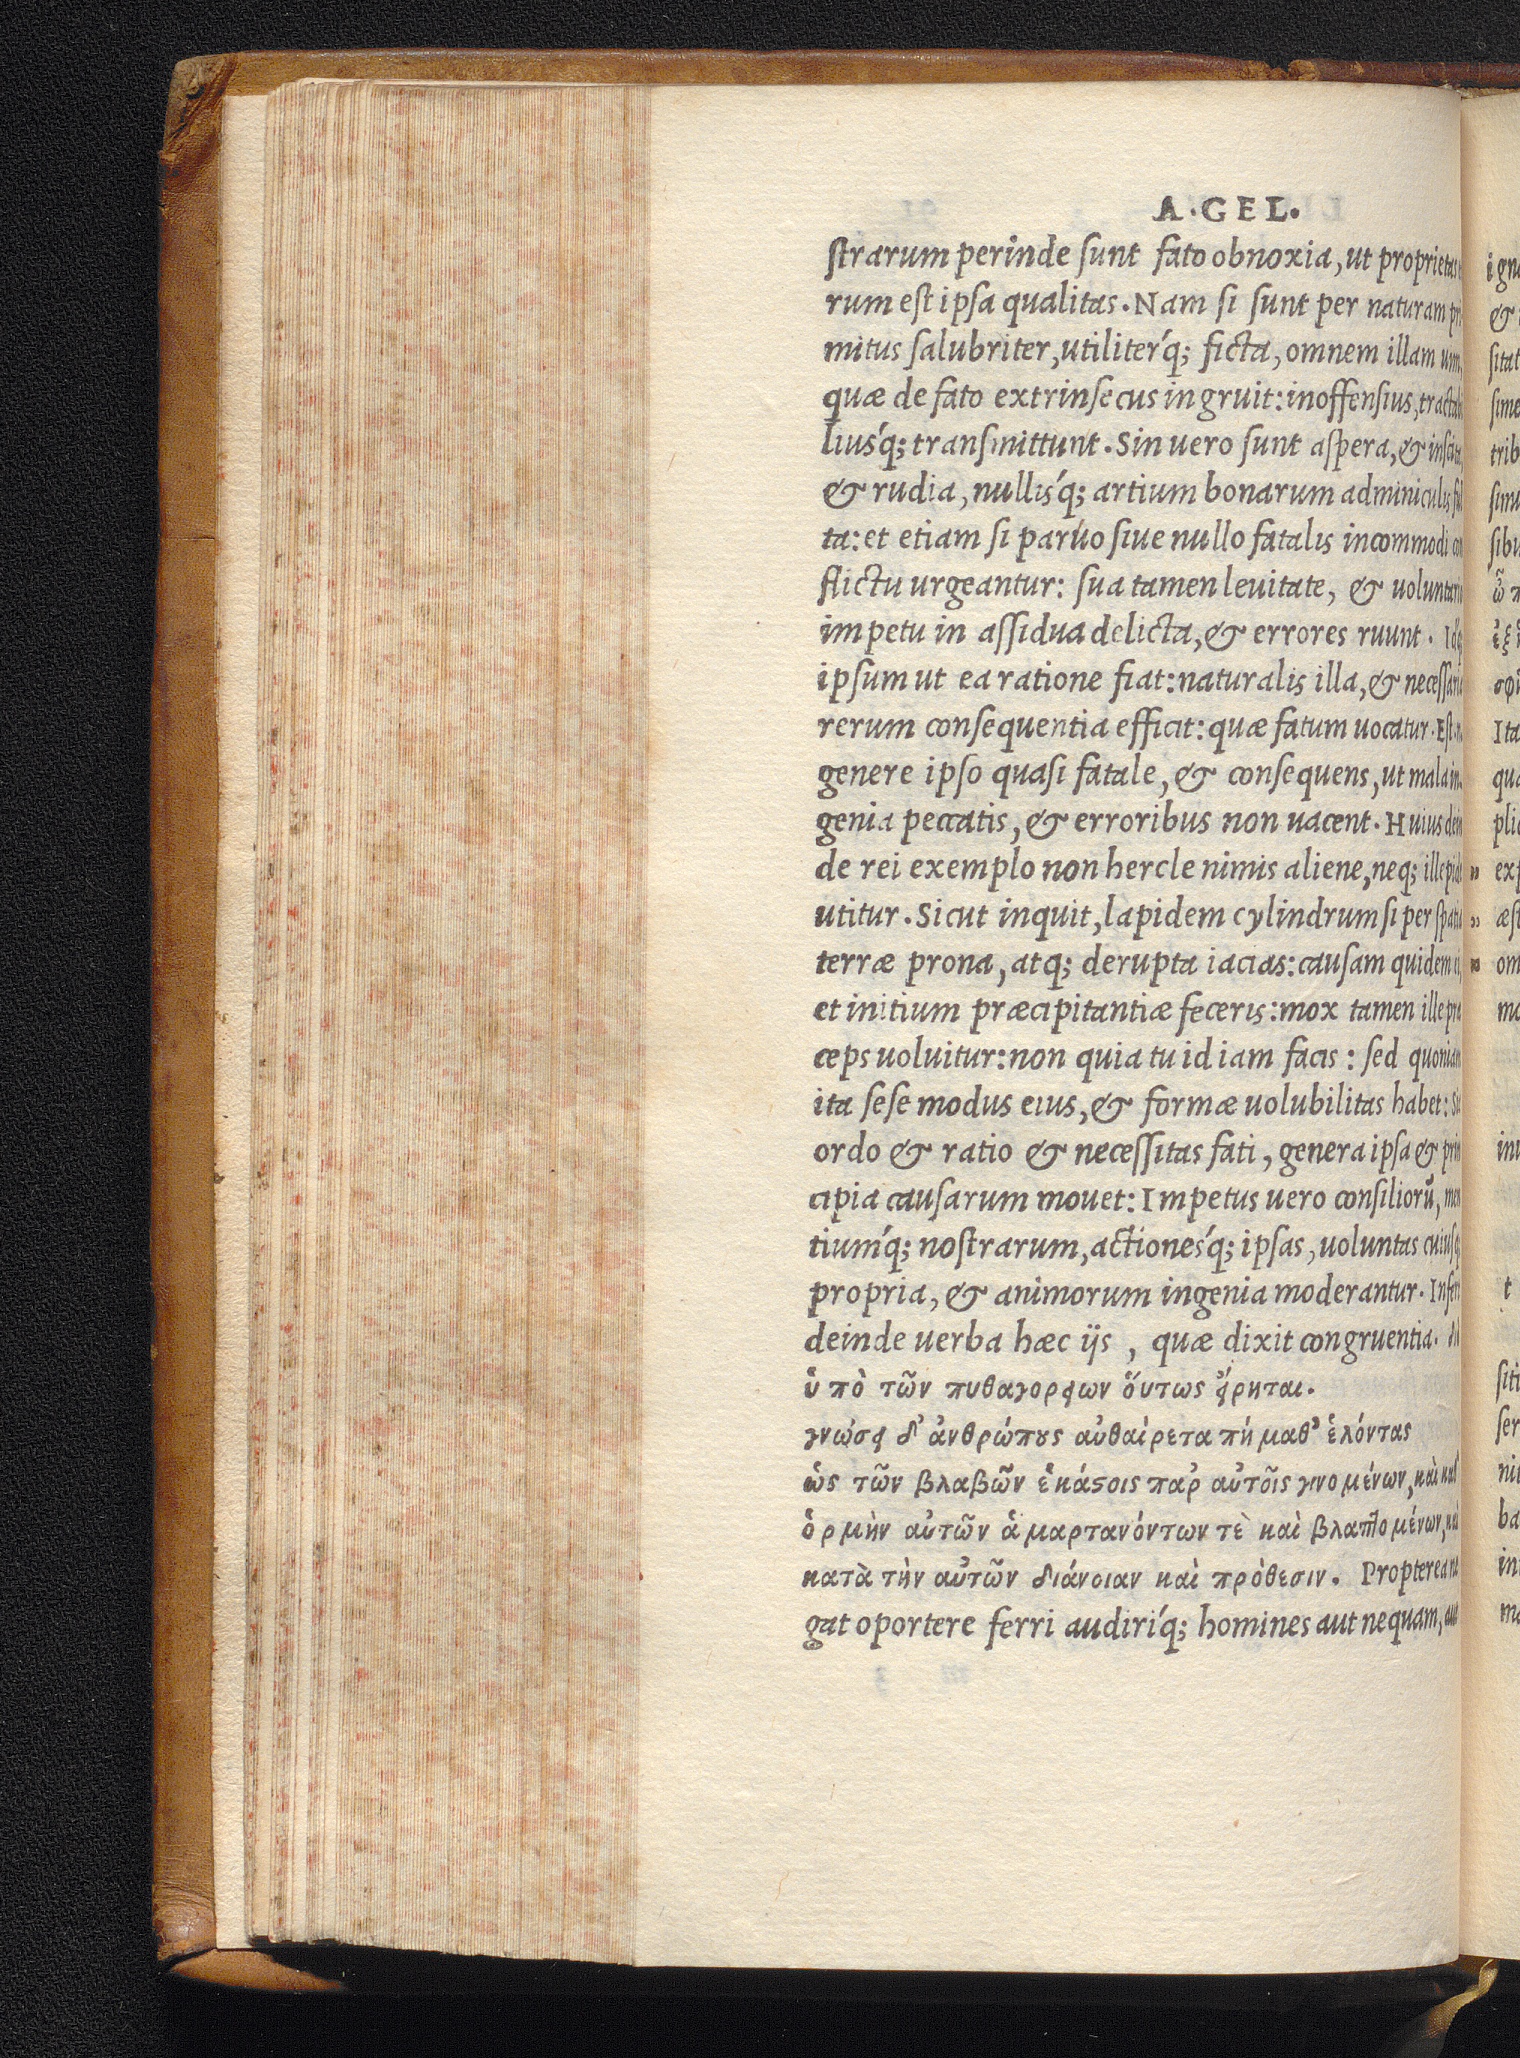 A. GEL.
strarum perinde sunt fato obnoxia, ut proprietas
rum est ipsa qualitas. Nam si sunt per naturam pri
mitus salubriter, utiliterq́; ficta, omnem illam uim,
quæ de fato extrinsecus ingruit: inoffensius, tracta
liusq́; transmittunt. Sin uero sunt aspera, & inscita,
& rudia, nullisq́; artium bonarum adminiculis ful
ta: et etiam si paruo siue nullo fatalis incommodi con
flictu urgeantur: sua tamen leuitate, & uoluntario
impetu in assidua delicta, & errores ruunt. Idq́;
ipsum ut ea ratione fiat: naturalis illa, & necessaria
rerum consequentia efficit: quæ fatum uocatur. Est.n.
genere ipso quasi fatale, & consequens, ut mala in
genia peccatis, & erroribus non uacent. Huius dein
de rei exemplo non hercle nimis aliene, neq; illepide
utitur. Sicut inquit, lapidem cylindrum si per spatia
terræ prona, atq; derupta iacias: causam quidem ei,
et initium præcipitantiæ feceris: mox tamen ille præ
ceps uoluitur: non quia tu id iam facis: sed quoniam
ita sese modus eius, & formæ uolubilitas habet: Sic
ordo & ratio & necessitas fati, genera ipsa & prin
cipia causarum mouet: Impetus uero consiliorũ, men
tiumq́; nostrarum, actionesq́; ipsas, uoluntas cuiusq;
propria, & animorum ingenia moderantur. Infert
deinde uerba hæc ijs, quæ dixit congruentia.
ὑπὸ τῶν πυθαγορείων ὅυτως ἔιρηται.
γνώσει δ' ἀνθρώπους αὐθαίρετα πήμαθ' ἑλόντας
ὡς τῶν βλαβῶν ἑκάστοις παρ' αὐτοῖς γινομένων, καὶ καθ'
ὁρμὴν αὐτῶν ἁμαρτανόντων τὲ καὶ βλαπτομένων, καὶ
κατὰ τὴν αὐτῶν διάνοιαν καὶ πρόθεσιν. Propterea ne
gat oportere ferri audiriq́; homines aut nequam, aut